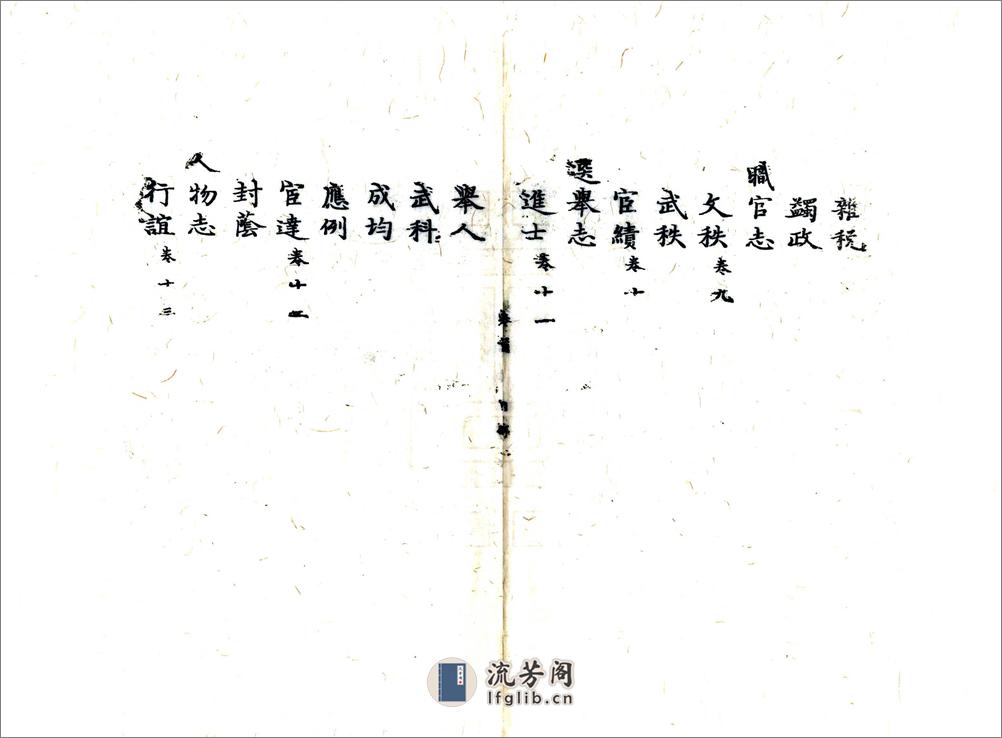 雜稅
蠲政
職官志
文秩 卷九
武秩
宦績 卷十
選舉志
進士 卷十一
卷首 目錄 二
舉人
武科
成均
應例
宦達 卷十二
封蔭
人物志
行誼 卷十三
流芳阁
lfglib.cn